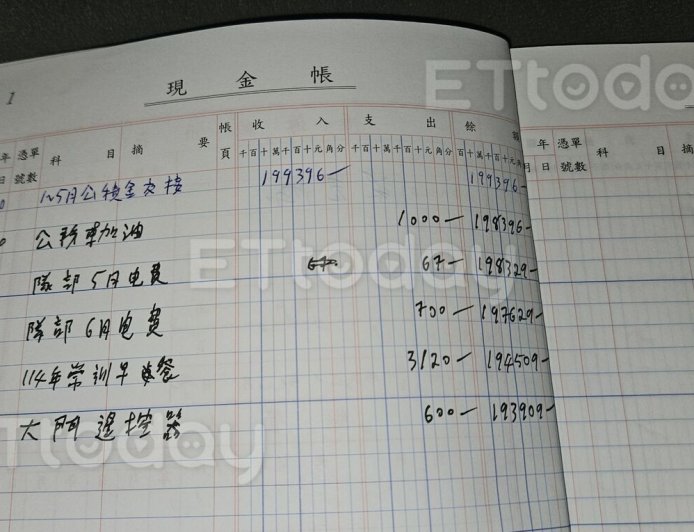 1
現金帳
年 憑單 科目 摘要 帳 收入 支出 餘額
日 號數 頁 千百十萬千百十元角分 千百十萬千百十元角分 百十萬千百十元角分
1~5月公積金交接 199396- 199396-
公務車加油 1000- 198396-
隊部5月电費 67- 198329-
隊部6月电費 700- 197629-
114年常訓午餐 3120- 194509-
大門遙控器 600- 193909-
年 憑單 科目 摘
月 日 號數
ETtoday
ETtoday
ETtoday